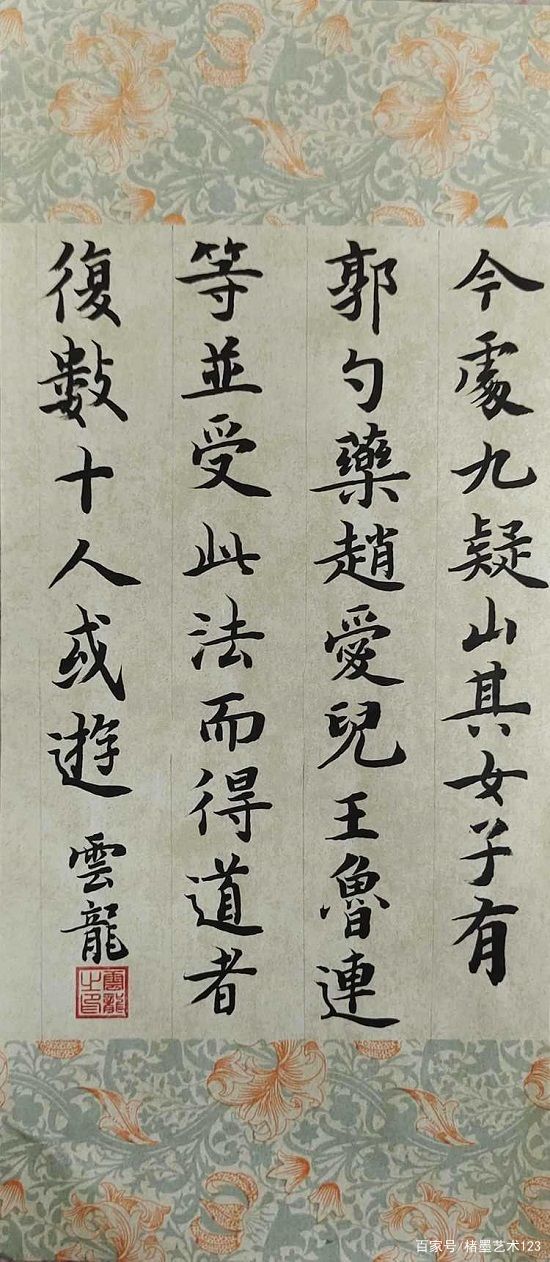 今處九疑山其女子有
郭勺藥趙愛兒王魯連
等並受此法而得道者
復數十人或遊
雲龍
雲龍之印
百家号/楮墨艺术123